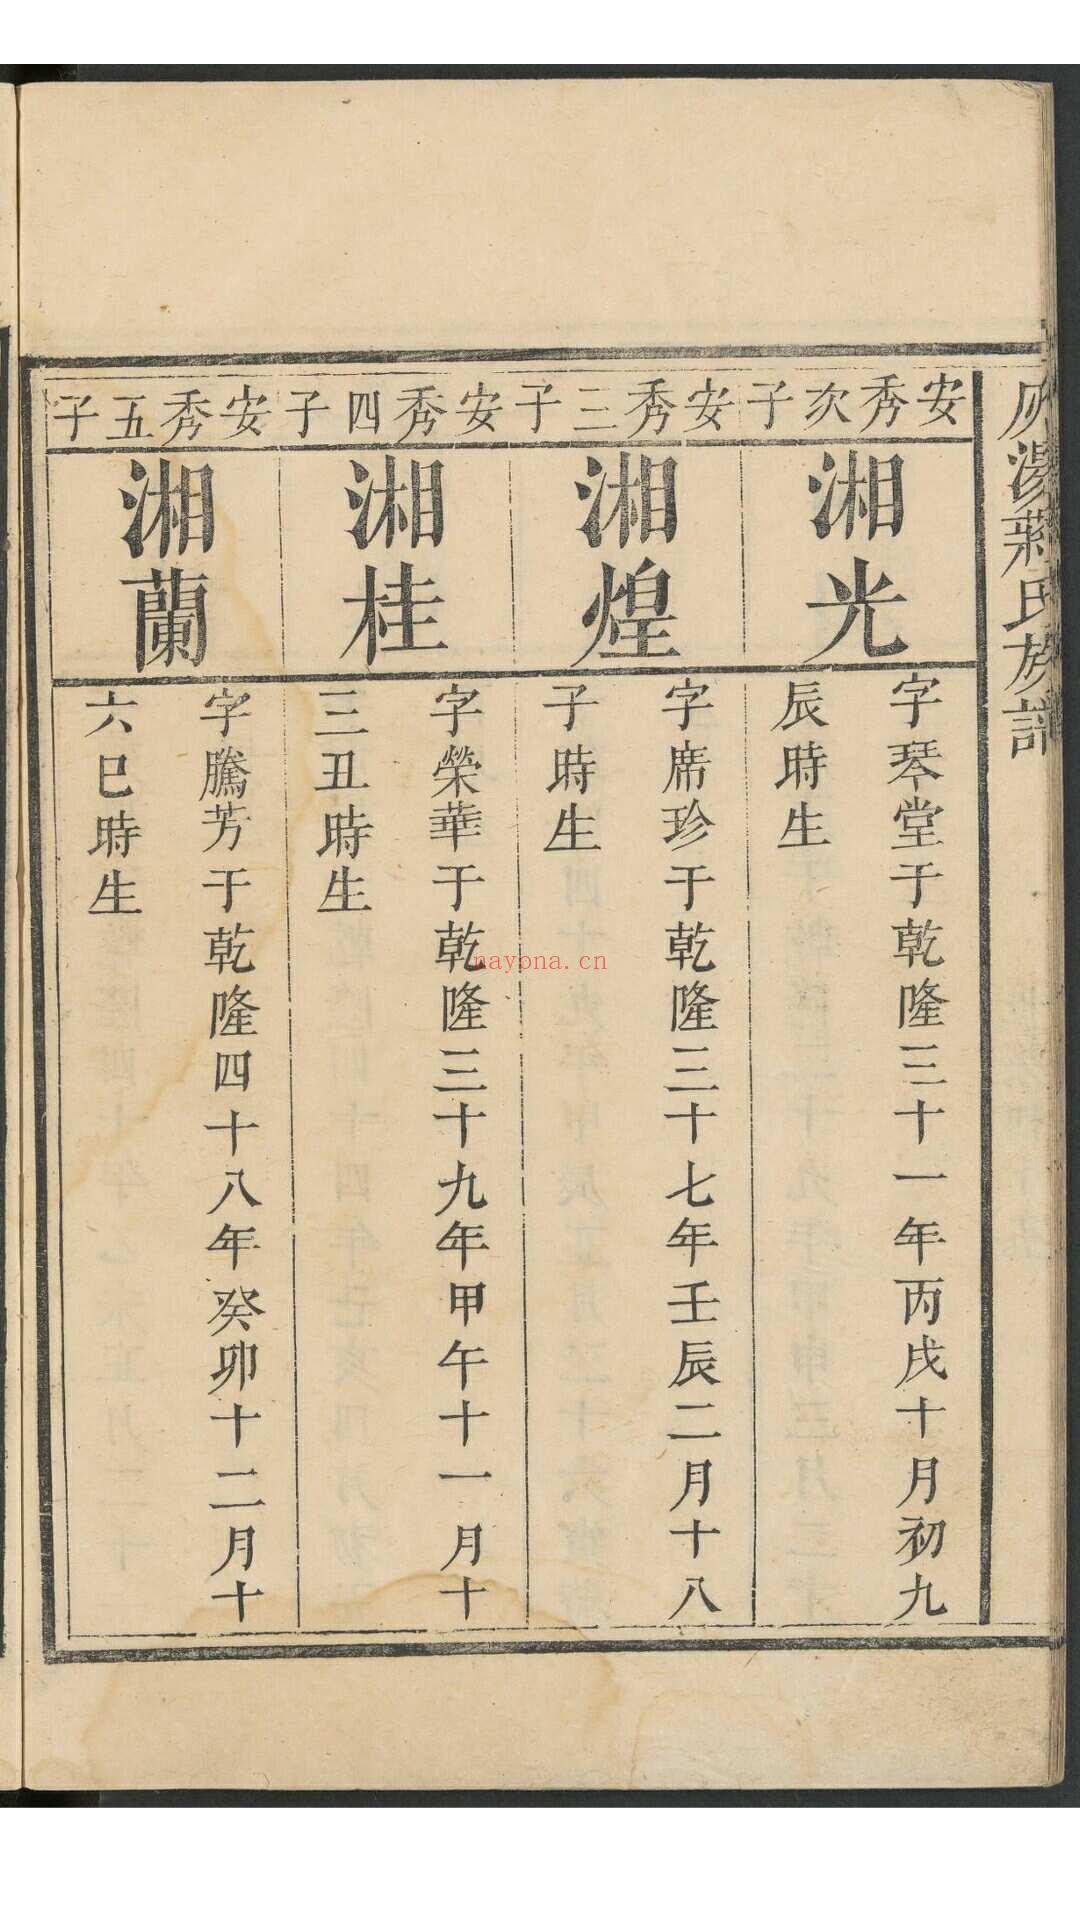 灰湯蔣氏族譜
安秀次子
湘光
字琴堂于乾隆三十一年丙戌十月初九
辰時生
安秀三子
湘煌
字席珍于乾隆三十七年壬辰二月十八
子時生
安秀四子
湘桂
字榮華于乾隆三十九年甲午十一月十
三丑時生
安秀五子
湘蘭
字騰芳于乾隆四十八年癸卯十二月十
六巳時生
nayona.cn